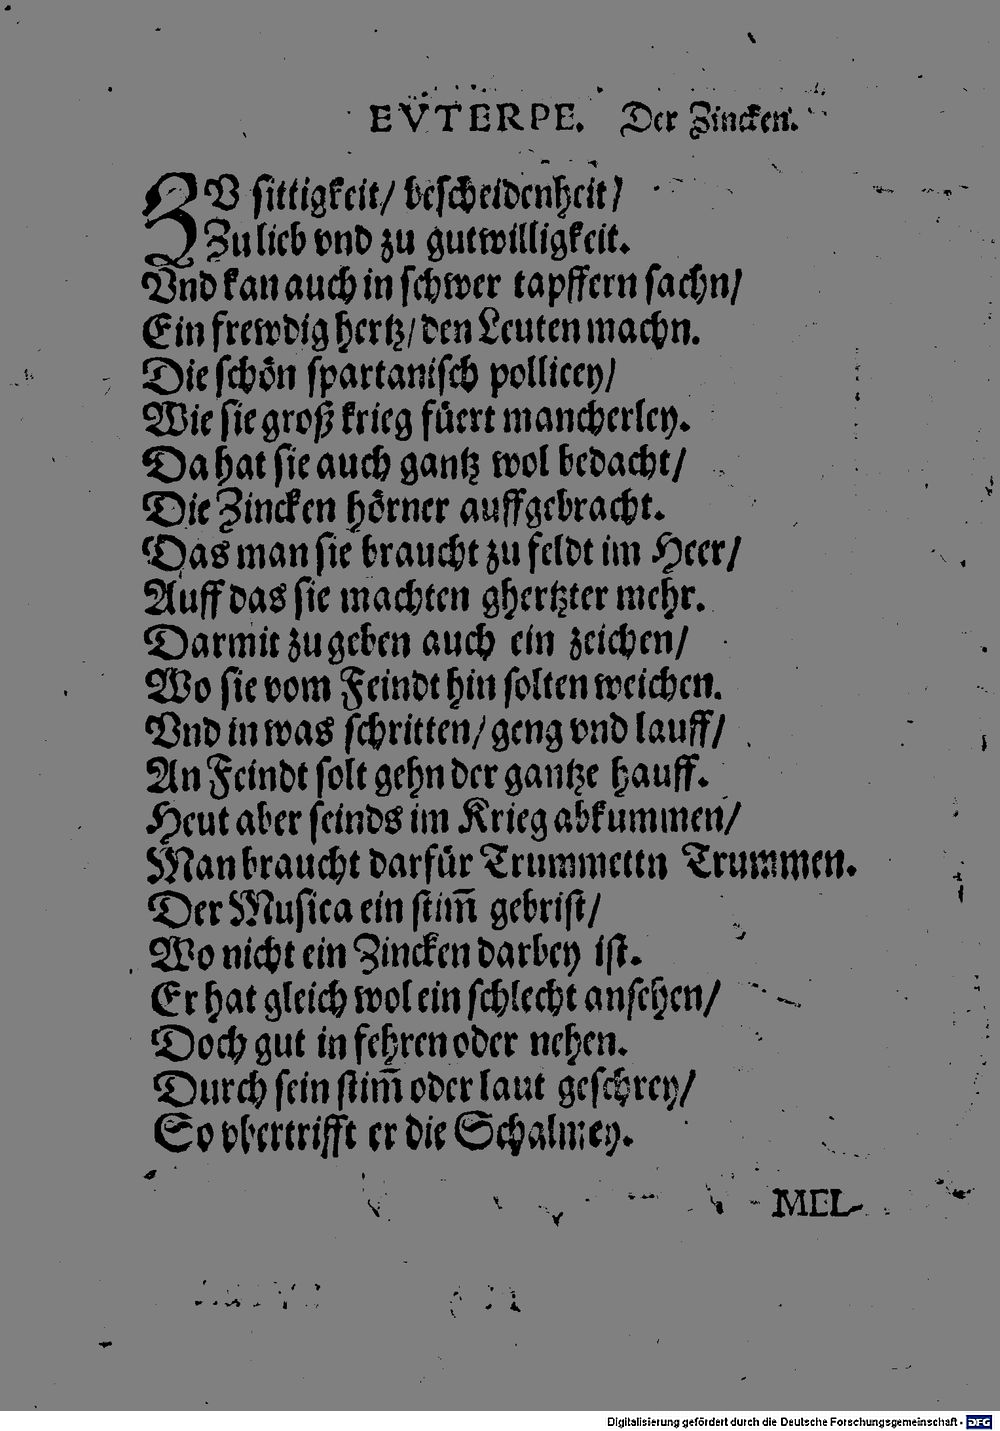 EVTERPE. Der Zincken.
ZV sittigkeit/ bescheidenheit/
Zu lieb vnd zu gutwilligkeit.
Vnd kan auch in schwer tapffern sachn/
Ein frewdig hertz/ den Leuten machn.
Die schön spartanisch pollicey/
Wie sie groß krieg füert mancherley.
Da hat sie auch gantz wol bedacht/
Die Zincken hörner auffgebracht.
Das man sie braucht zu feldt im Heer/
Auff das sie machten ghertzter mehr.
Darmit zu geben auch ein zeichen/
Wo sie vom Feindt hin solten weichen.
Vnd in was schritten/ geng vnd lauff/
An Feindt solt gehn der gantze hauff.
Heut aber seinds im Krieg abkummen/
Man braucht darfür Trummettn Trummen.
Der Musica ein stim̃ gebrist/
Wo nicht ein Zincken darbey ist.
Er hat gleich wol ein schlecht ansehen/
Doch gut in fehren oder nehen.
Durch sein stim̃ oder laut geschrey/
So vbertrifft er die Schalmey.
MEL-
Digitalisierung gefördert durch die Deutsche Forschungsgemeinschaft - DFG